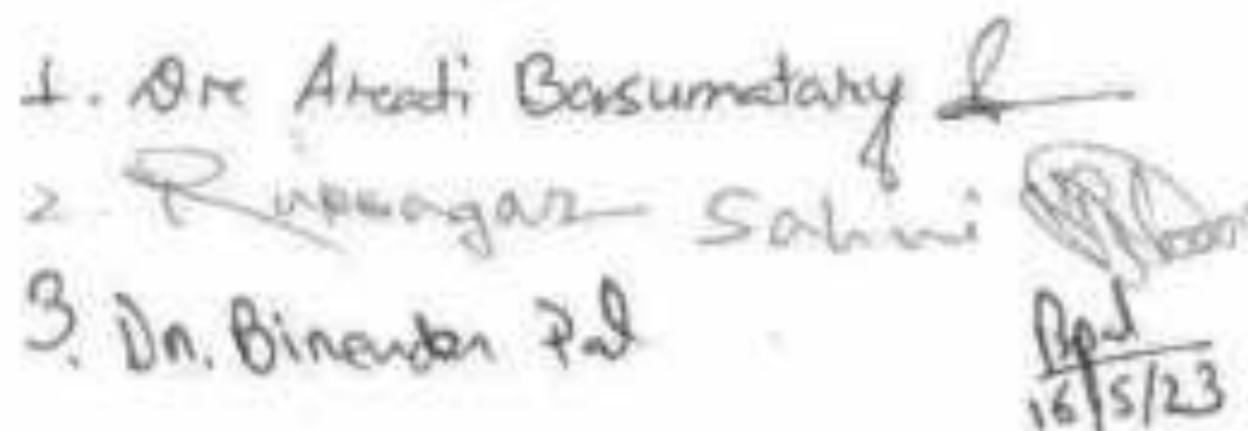 1. Dr Arati Basumatary
2. Rupsagar Sahini
3. Dr. Birendra Pal
Bpal
16/5/23